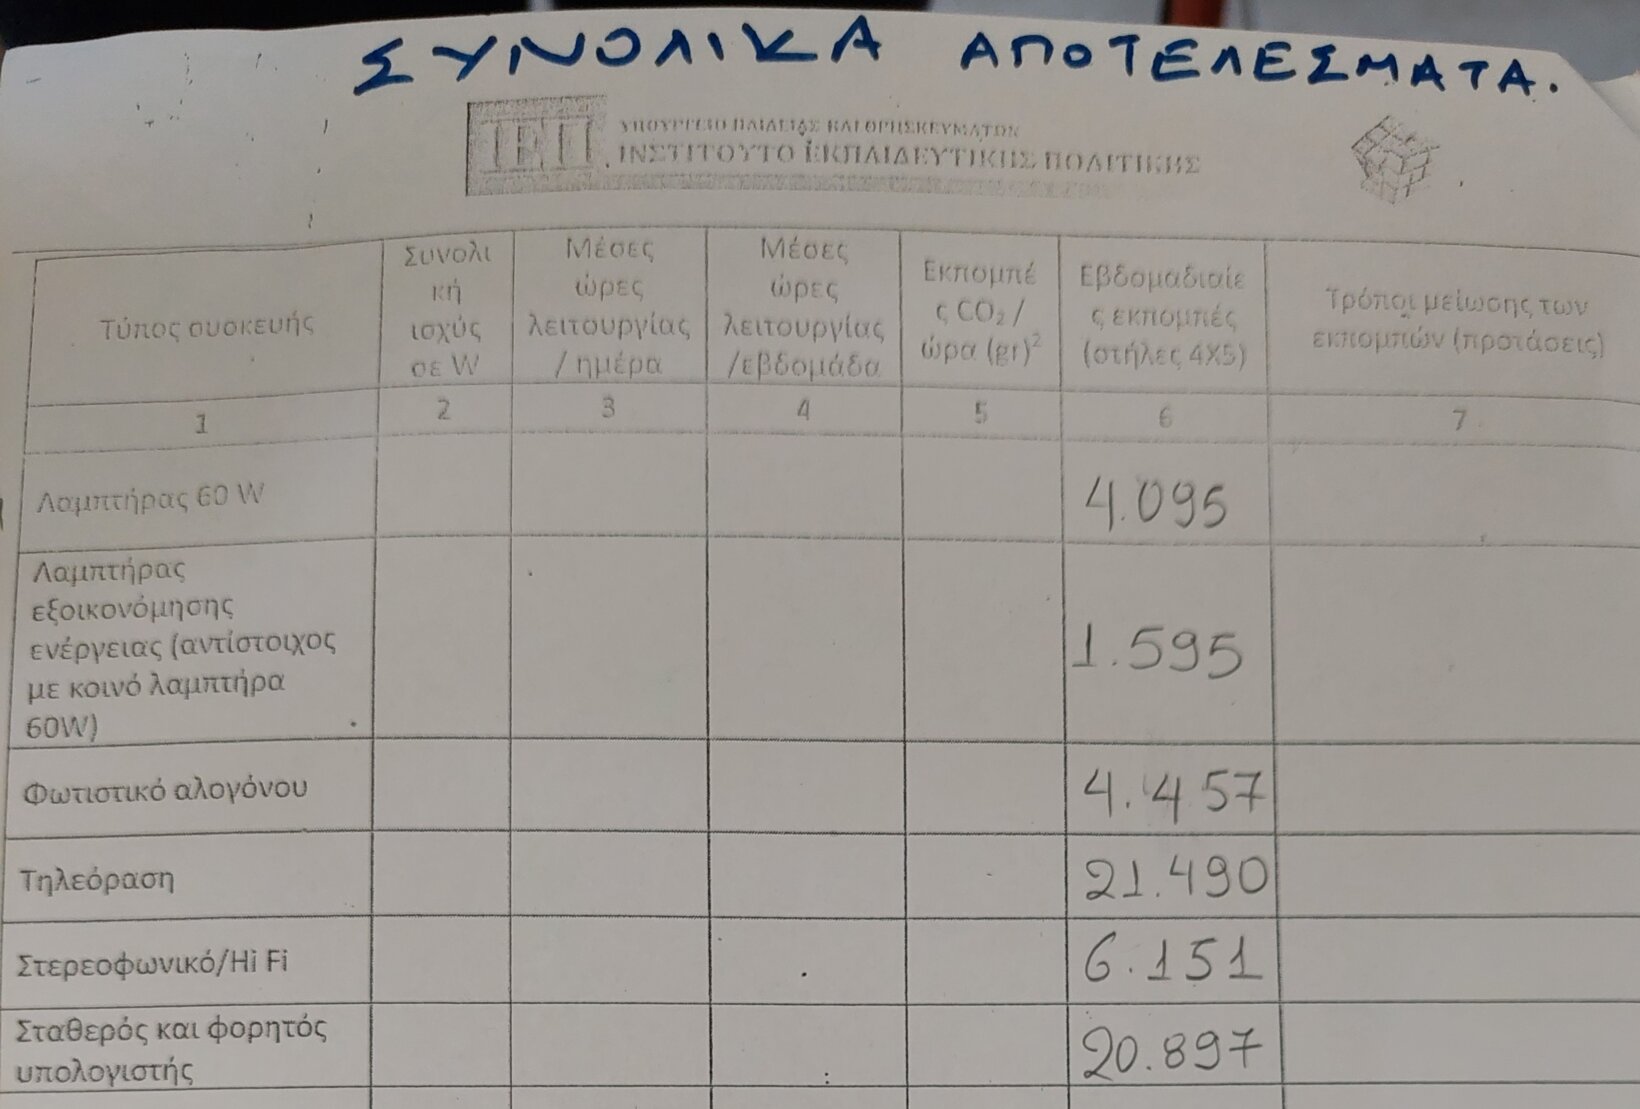 ΣΥΝΟΛΙΚΑ ΑΠΟΤΕΛΕΣΜΑΤΑ.
ΙΕΠ
ΥΠΟΥΡΓΕΙΟ ΠΑΙΔΕΙΑΣ ΚΑΙ ΘΡΗΣΚΕΥΜΑΤΩΝ
ΙΝΣΤΙΤΟΥΤΟ ΕΚΠΑΙΔΕΥΤΙΚΗΣ ΠΟΛΙΤΙΚΗΣ
Τύπος συσκευής
Συνολι
κή
ισχύς
σε W
Μέσες
ώρες
λειτουργίας
/ ημέρα
Μέσες
ώρες
λειτουργίας
/εβδομάδα
Εκπομπέ
ς CO₂ /
ώρα (gr)²
Εβδομαδιαίε
ς εκπομπές
(στήλες 4X5)
Τρόποι μείωσης των
εκπομπών (προτάσεις)
1 2 3 4 5 6 7
Λαμπτήρας 60 W 4.095
Λαμπτήρας
εξοικονόμησης
ενέργειας (αντίστοιχος
με κοινό λαμπτήρα
60W)
1.595
Φωτιστικό αλογόνου 4.457
Τηλεόραση 21.490
Στερεοφωνικό/Hi Fi 6.151
Σταθερός και φορητός
υπολογιστής
20.897